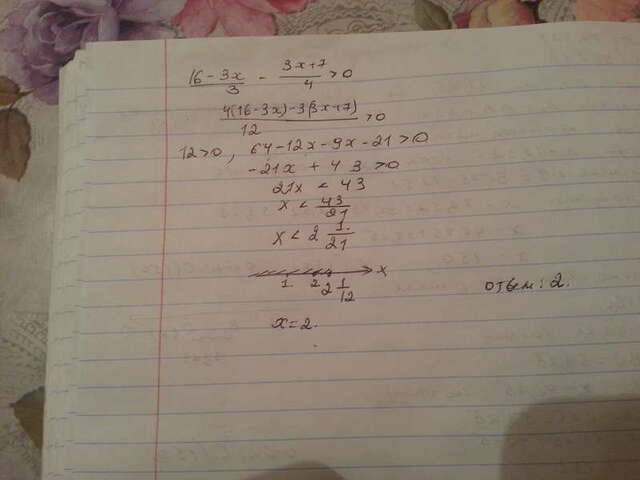 16-3x/3 - 3x+7/4 >0
4(16-3x)-3(3x+7)/12 >0
12>0, 64-12x-9x-21>0
-21x+43>0
21x<43
x<43/21
x<2 1/21
1 2 2 1/12 x
x=2.
ответ: 2.